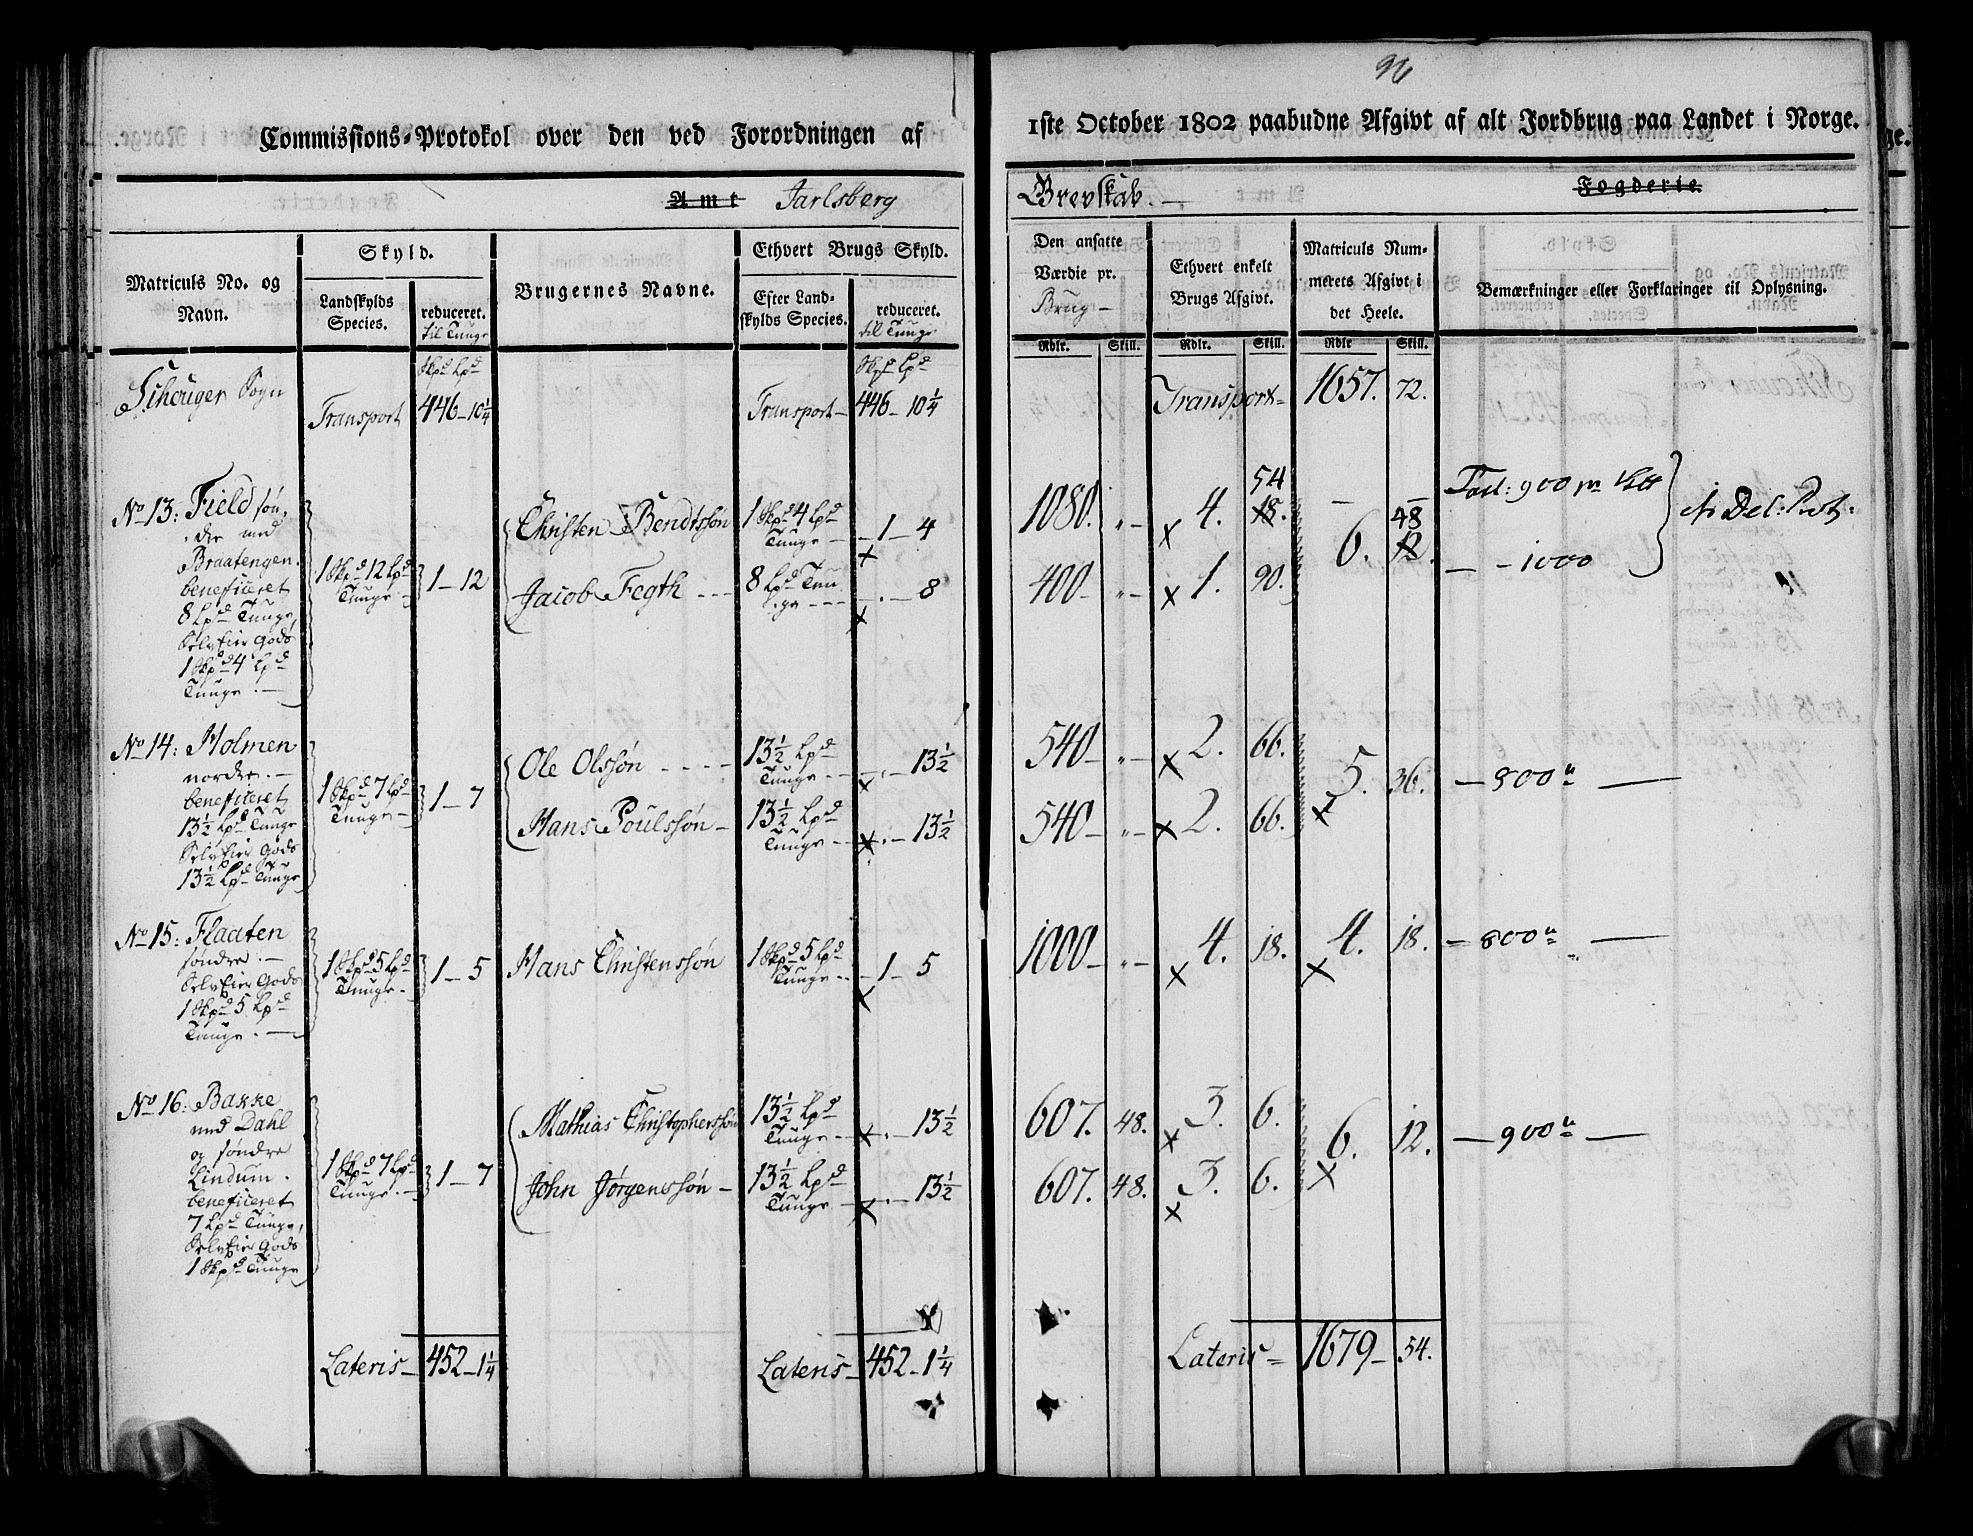 96
Commissions-Protokol over den ved Forordningen af
1ste October 1802 paabudne Afgivt af alt Jordbrug paa Landet i Norge.
Amt Jarlsberg
Grevskab. Fogderie.
Matriculs No. og Navn.
Skyld.
Landskylds Species.
reduceret. til Tunge
Brugernes Navne.
Ethvert Brugs Skyld.
Efter Landskylds Species.
reduceret. til Tunge
Den ansatte Værdie pr. Brug
Ethvert enkelt Brugs Afgivt.
Matriculs Nummerets Afgivt i det Heele.
Bemærkninger eller Forklaringer til Oplysning.
Rdlr. Skill. Rdlr. Skill. Rdlr Skill.
Skpd Lpd Skpd Lpd
Schouger Sogn Transport 446 - 10 1/4 Transport - 446 - 10 1/4 Transport - 1657. 72.
No 13: Field søn-
dre med
Braatengen.
beneficeret
8 Lpd Tunge,
Selv Eier Gods
1 Skpd 4 Lpd
Tunge. -
1 Skpd 12 Lpd
Tunge -
1 - 12
Christen Bendtssøn 1 Skpd 4 Lpd Tunge - 1 - 4 1080. „ - x 4. 54 18.
Jacob Fegth - - - 8 Lpd Tun-
ge - - - . - 8 400 - „ - x 1. 90.
6. 48 12.
900
- - 1000
No 14: Holmen
nordre. -
beneficeret
13 1/2 Lpd Tunge
Selv Eier Gods
13 1/2 Lpd Tunge
1 Skpd 7 Lpd
Tunge -
1 - 7
Ole Olssøn - - - - 13 1/2 Lpd Tunge - . - 13 1/2 540 - „ - x 2. 66.
Hans Poulssøn - 13 1/2 Lpd Tunge - . - 13 1/2 540 - „ - x 2. 66.
5. 36. - 800 „ -
No 15: Flaaten
søndre. -
Selv Eier Gods
1 Skpd 5 Lpd
Tunge. -
1 Skpd 5 Lpd
Tunge -
1 - 5
Hans Christenssøn 1 Skpd 5 Lpd Tunge - 1 - 5 1000 - „ - x 4. 18. x 4. 18. - 800 „ -
No 16: Bakke
med Dahl
og søndre
Lindum.
beneficeret
7 Lpd Tunge,
Selv Eier Gods
1 Skpd Tunge
1 Skpd 7 Lpd
Tunge. -
1 - 7
Mathias Christopherssøn 13 1/2 Lpd Tunge - x . - 13 1/2 607. 48. x 3. 6.
John Jørgenssøn - 13 1/2 Lpd Tunge - x . - 13 1/2 607. 48. x 3. 6.
6. 12. - 900 „ -
Lateris - 452 - 1 1/4 Lateris - 452 - 1 1/4 Lateris = 1679 - 54.